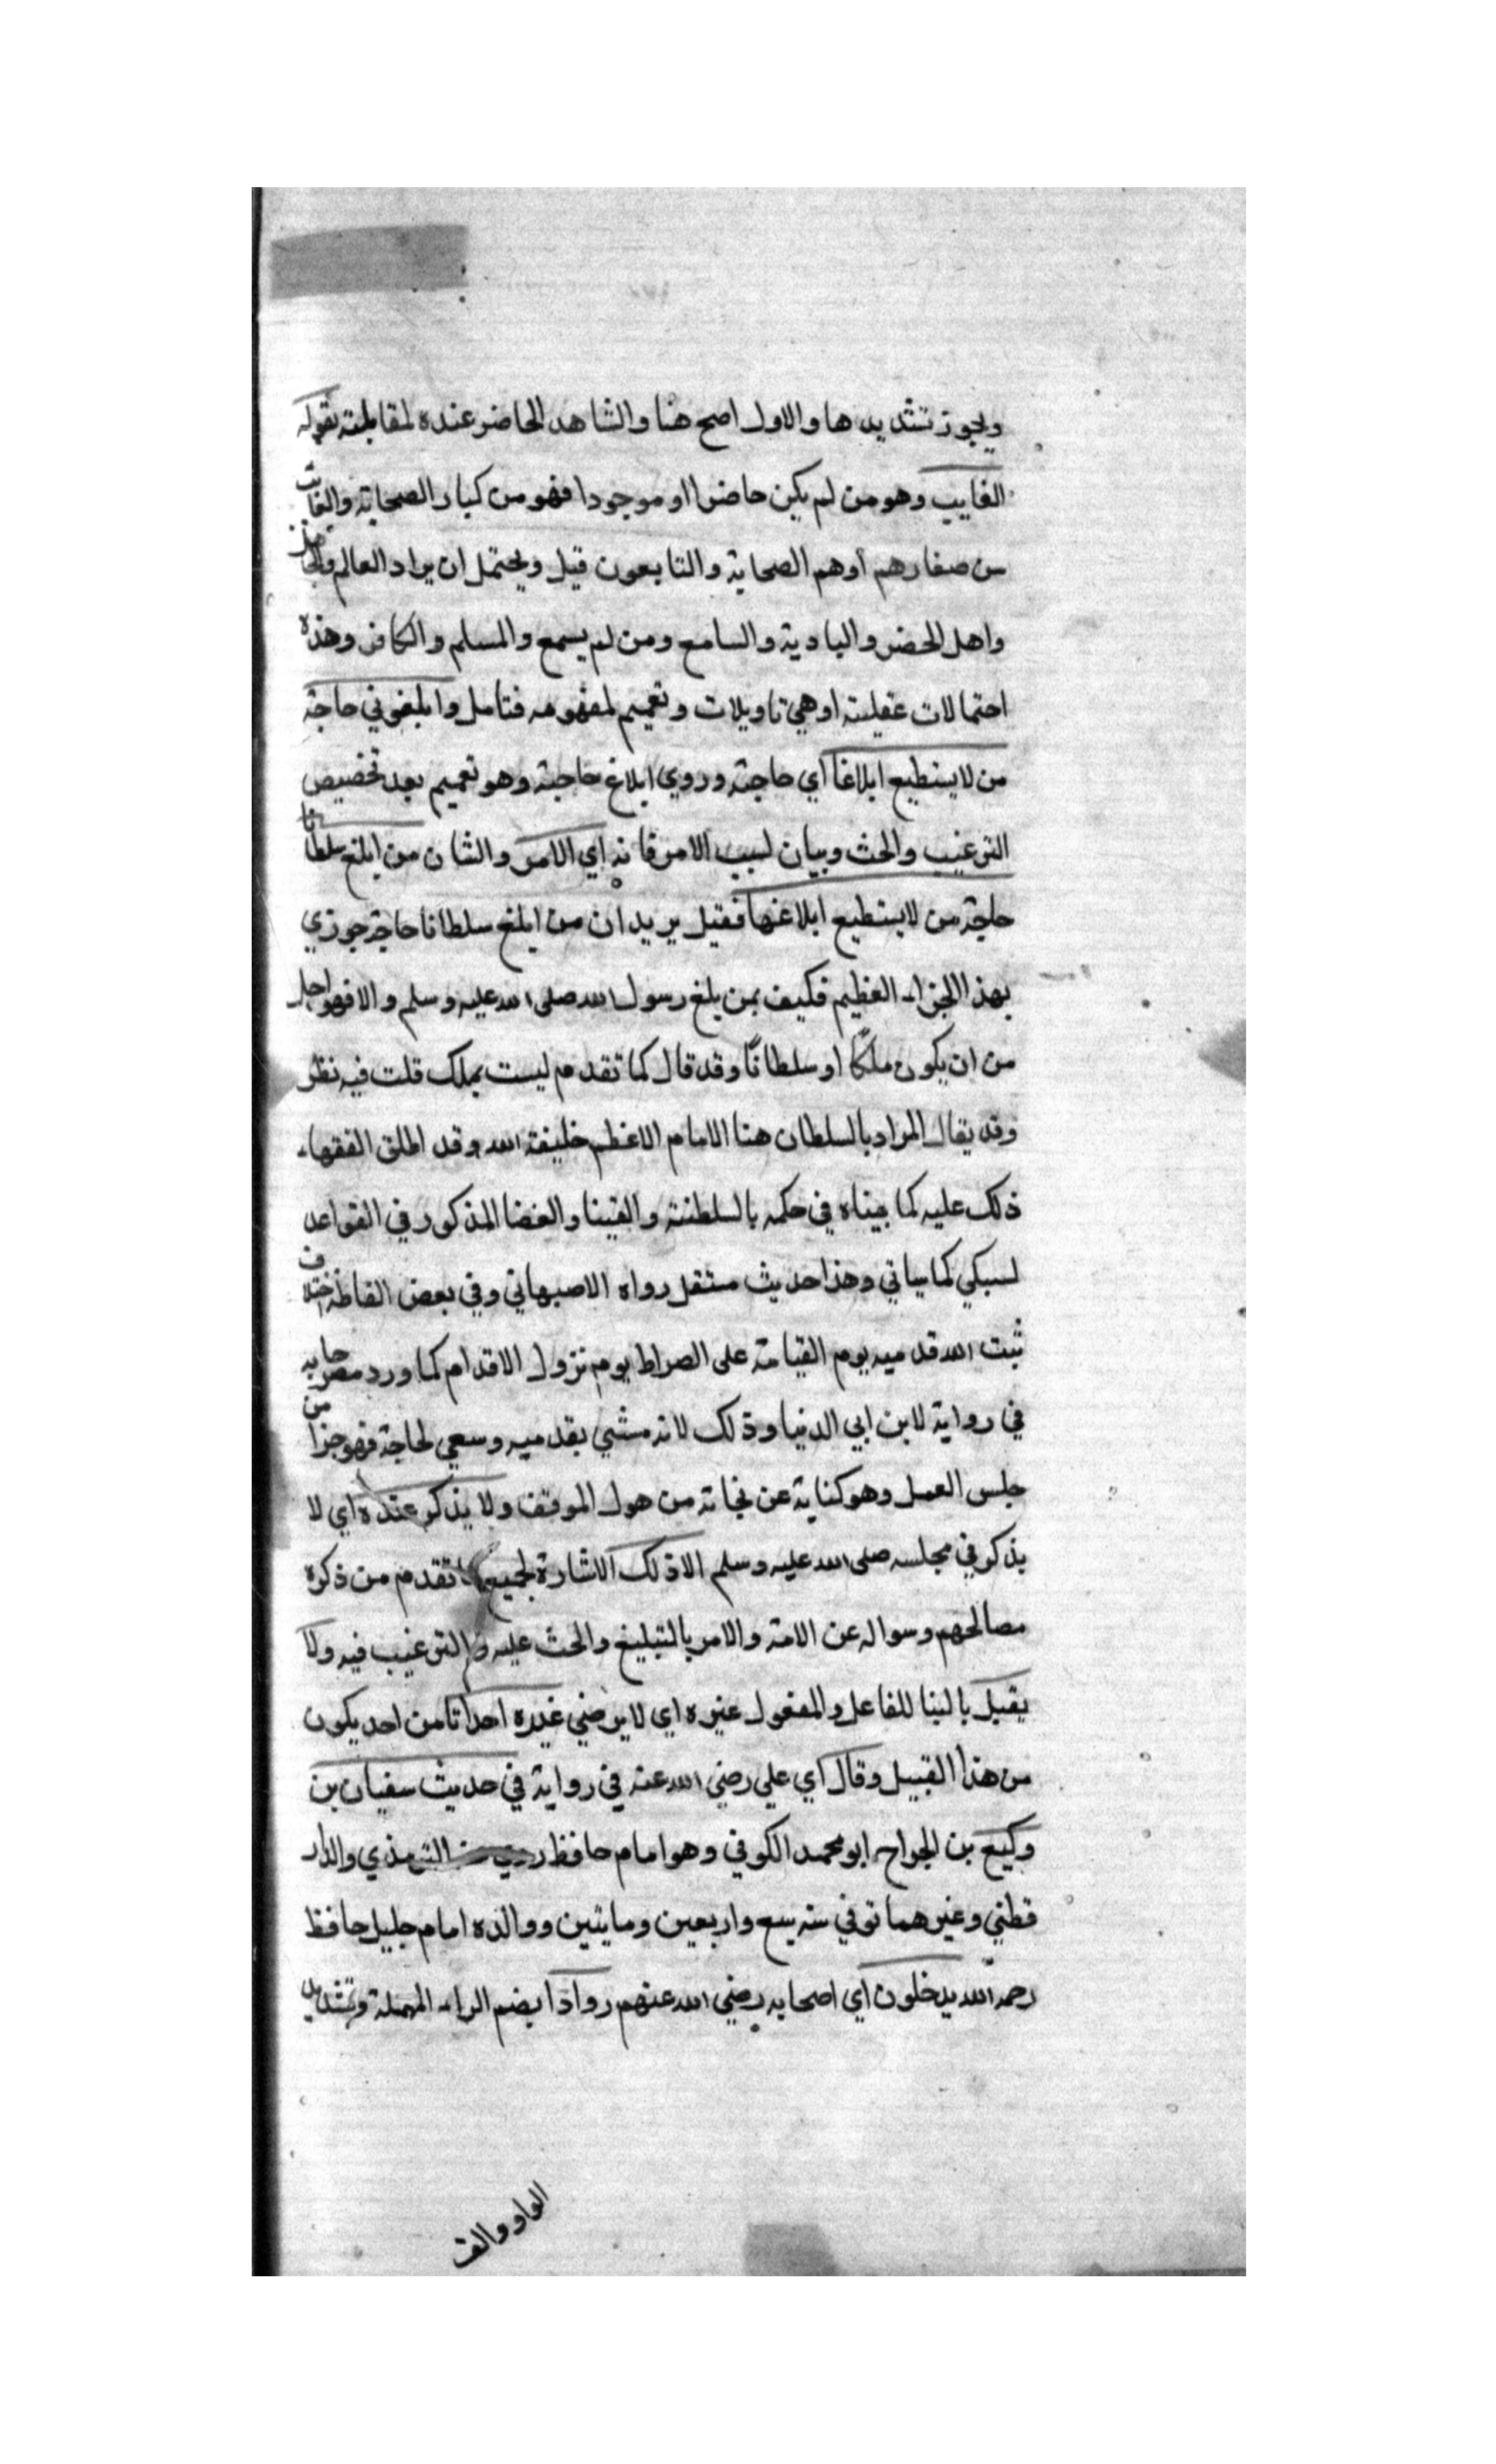 ويجوز تشديدها والاول اصح هنا والشاهد الحاضر عنده لمقابلته بقوله
الغايب وهو من لم يكن حاضرا او موجودا فهو من كبار الصحابة والغايب
من صغارهم أوهم الصحابة والتابعون قيل ويحتمل ان يراد العالم والجاهل
واهل الحضر والبادية والسامع ومن لم يسمع والمسلم والكافر وهذه
احتمالات عقلية اوهي تاويلات وتعميم لمفهومه فتامل وابلغوني حاجة
من لا يستطيع ابلاغا أي حاجته وروي ابلاغ حاجته وهو تعميم بعد تخصيص
الترغيب والحث وبيان لسبب الامر فانه اي الامر والشان من ابلغ سلطانا
حاجة من لا يستطيع ابلاغها فقيل يريد ان من ابلغ سلطانا حاجة جوزي
بهذا الجزاء العظيم فكيف بمن بلغ رسول الله صلى الله عليه وسلم والا فهو اجل
من ان يكون ملكا او سلطانا وقد قال كما تقدم ليست بملك قلت فيه نظر
وقد يقال المراد بالسلطان هنا الامام الاعظم خليفة الله وقد اطلق الفقهاء
ذلك عليه كما بيناه في حكمه بالسلطنة والفتيا والقضا المذكور في القواعد
لسبكي كما سياتي وهذا حديث مستقل رواه الاصبهاني وفي بعض الفاظه اختلاف
ثبت الله قدميه يوم القيامة على الصراط يوم تزول الاقدام كما ورد مصرحا به
في رواية لابن ابي الدنيا وذلك لانه مشي بقدميه وسعي لحاجة فهو جزا من
جلس العمل وهو كناية عن نجاته من هول الموقف ولا يذكر عنده اي لا
يذكر في مجلسه صلى الله عليه وسلم الا ذلك الاشارة لجميع ما تقدم من ذكره
مصالحهم وسواله عن الامة والامر بالتبليغ والحث عليه والترغيب فيه ولا
يقبل بالبنا للفاعل والمفعول غيره اي لا يرضي غيره احدا تامن احد يكون
من هذا القبيل وقال أي علي رضي الله عنه في رواية في حديث سفيان بن
وكيع بن الجراح ابو محمد الكوفي وهو امام حافظ روي الترمذي والدار
قطني وغيرهما توفي سنه سبع واربعين ومايتين ووالده امام جليل حافظ
رحمه الله يدخلون أي اصحابه رضي الله عنهم روادا بضم الراء المهملة وتشديد
الواو والف